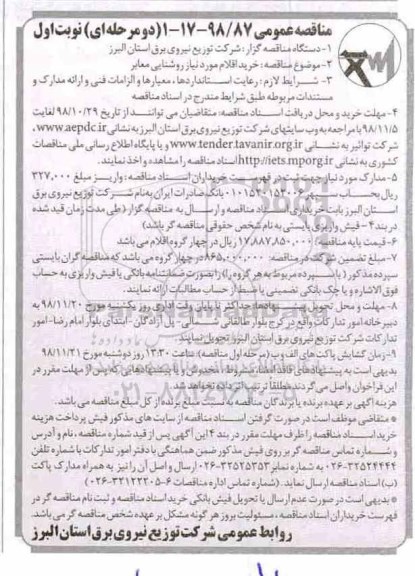 مناقصه عمومی ۹۸/۸۷-۱۷-۱ (دو مرحله‌ای) نوبت اول
۱- دستگاه مناقصه گزار: شرکت توزیع نیروی برق استان البرز
۲- موضوع مناقصه: خرید اقلام مورد نیاز روشنایی معابر
۳- شرایط لازم: رعایت استانداردها، معیارها و الزامات فنی و ارائه مدارک و
مستندات مربوطه طبق شرایط مندرج در اسناد مناقصه
۴- مهلت خرید و محل دریافت اسناد مناقصه: متقاضیان می توانند از تاریخ ۹۸/۱۰/۲۹ لغایت
۹۸/۱۱/۵ با مراجعه به وب سایتهای شرکت توزیع نیروی برق استان البرز به نشانی www.aepdc.ir،
شرکت توانیر به نشانی www.tender.tavanir.org.ir و یا پایگاه اطلاع رسانی ملی مناقصات
کشوری به نشانی http://iets.mporg.ir اسناد مناقصه را مشاهده و اخذ نمایند.
۵- مدارک مورد نیاز جهت ثبت در فهرست خریداران اسناد مناقصه: واریز مبلغ ۳۲۷,۰۰۰
ریال بحساب سپهر بانک صادرات ایران به نام شرکت توزیع نیروی برق
استان البرز بابت خریداری اسناد مناقصه و ارسال به مناقصه گزار (طی مدت زمان قید شده
در بند ۴ - فیش واریزی بایستی به نام شخص حقوقی مناقصه گر باشد)
۶- قیمت پایه مناقصه: ۱۷,۸۸۷,۸۵۰,۰۰۰ ریال در چهار گروه اقلام می باشد
۷- مبلغ تضمین شرکت در مناقصه: ۸۶۵,۰۰۰,۰۰۰ در چهار گروه می باشد که مناقصه گران بایستی
سپرده مذکور (یا سپرده مربوط به هر گروه) را بصورت ضمانتنامه بانکی یا فیش واریزی به حساب
فوق الاشاره و یا چک بانکی تضمینی یا ضبط از حساب مطالبات ارائه نمایند.
۸- مهلت و محل تحویل پیشنهادها: حداکثر تا پایان وقت اداری روز یکشنبه مورخ ۹۸/۱۱/۲۰ به
دبیرخانه امور تدارکات واقع در کرج بلوار طالقانی شمالی - پل آزادگان - ابتدای بلوار امام رضا - امور
تدارکات شرکت توزیع نیروی برق استان البرز تحویل نمایند.
۹- زمان گشایش پاکت های الف و ب (مرحله اول مناقصه): ساعت ۱۳:۳۰ روز دوشنبه مورخ ۹۸/۱۱/۲۱
بدیهی است به پیشنهادهای فاقد امضاء، مشروط، مخدوش و یا پیشنهادهایی که پس از مهلت مقرر در
این فراخوان واصل می گردند مطلقا ترتیب اثر داده نخواهد شد.
هزینه آگهی بر عهده برنده یا برندگان مناقصه به نسبت مبلغ برنده از کل مبلغ مناقصه می باشد.
* متقاضی موظف است در صورت گرفتن اسناد مناقصه از سایت های مذکور فیش پرداخت هزینه
خرید اسناد مناقصه را ظرف مهلت مقرر در بند ۴ این آگهی پس از قید شماره مناقصه، نام و آدرس
و شماره تماس مناقصه گر بر روی فیش مذکور ضمن هماهنگی با دفتر امور تدارکات با شماره تلفن
۰۲۶-۳۲۵۲۴۴۴۴ به شماره نمابر ۰۲۶-۳۲۵۲۵۳۵۳ ارسال و اصل آن را نیز به همراه مدارک پاکت
(ب) اسناد مناقصه ارسال نماید. (شماره تماس اداره مناقصات ۶-۳۳۱۲۲۲۰۵-۰۲۶)
* بدیهی است در صورت عدم ارسال یا تحویل فیش بانکی خرید اسناد مناقصه و ثبت نام مناقصه گر در
فهرست خریداران اسناد مناقصه، مسئولیت بروز هر گونه مشکل بر عهده شخص مناقصه گر می باشد.
روابط عمومی شرکت توزیع نیروی برق استان البرز